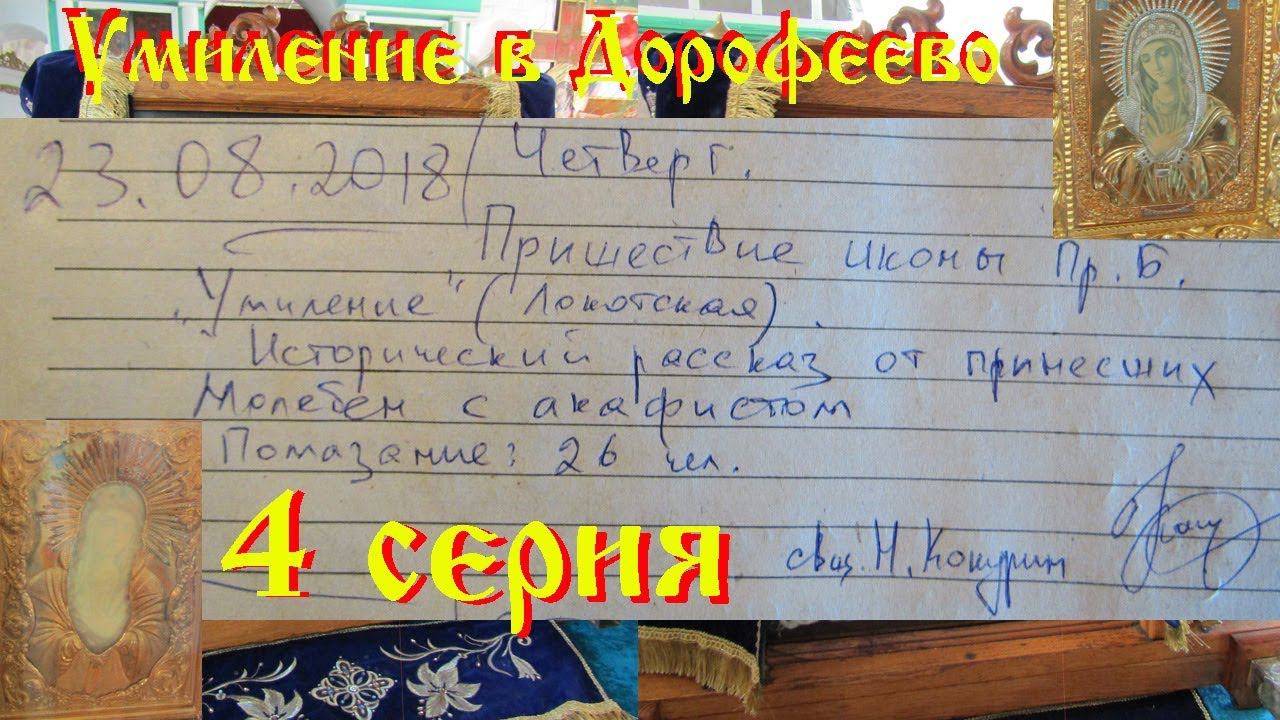 Умиление в Дорофеево
23.08.2018 Четверг.
Пришествие иконы Пр. Б.
"Умиление" (Локотская).
Исторический рассказ от принесших
Молебен с акафистом
Помазание: 26 чел.
4 серия
свящ. Н. Кокурин